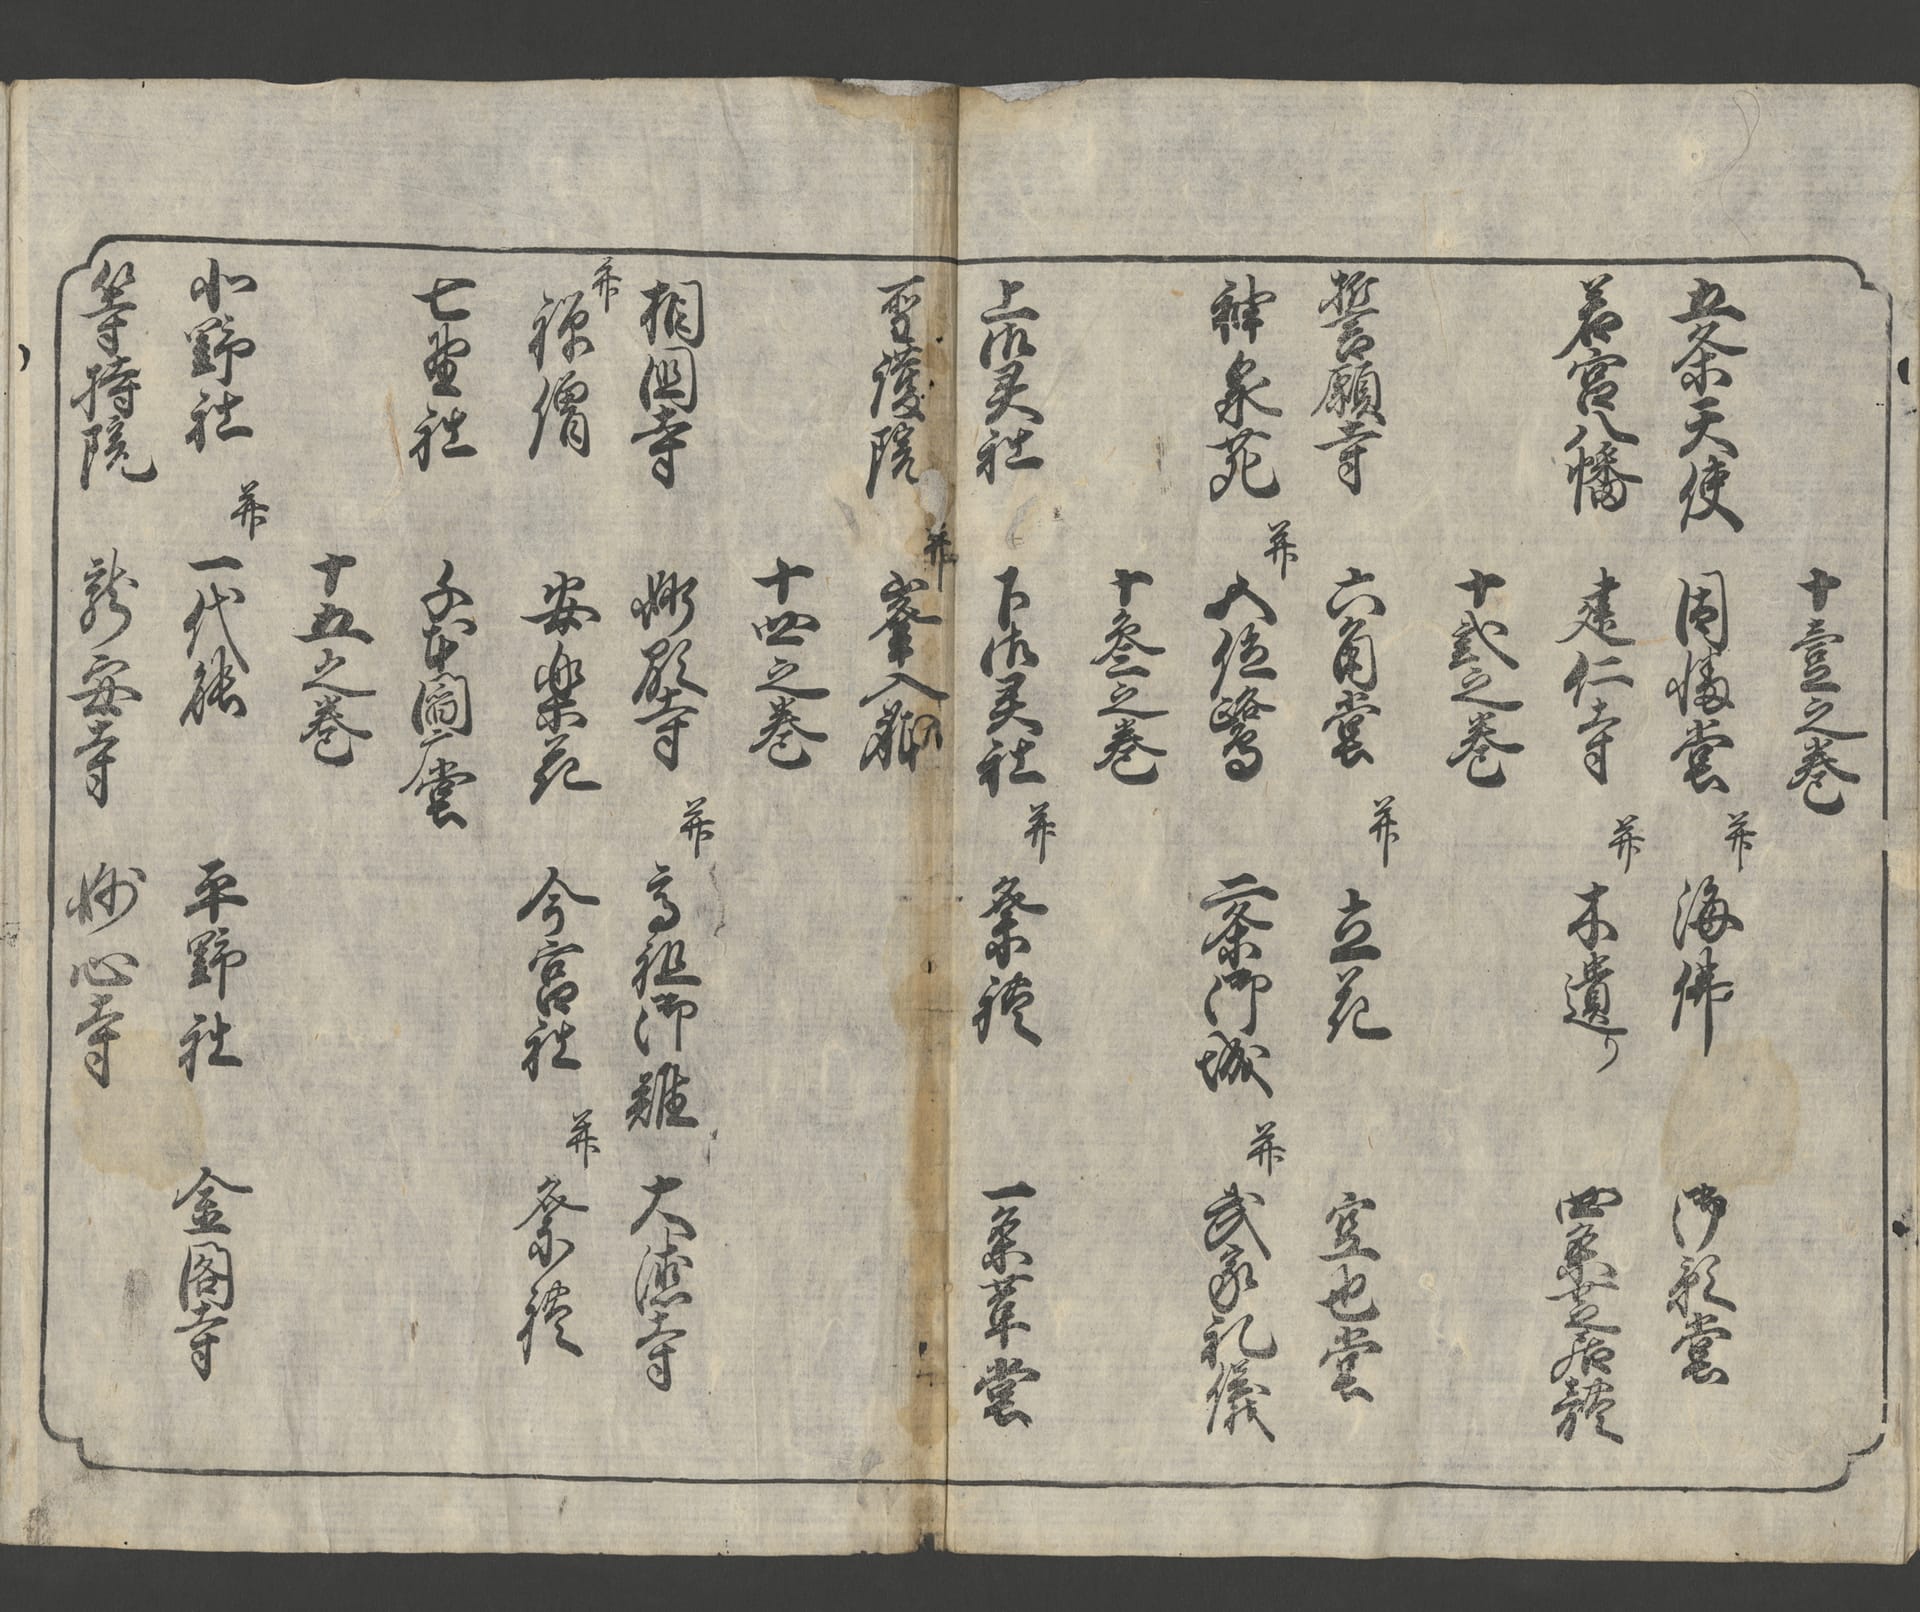 十壹之巻
五条天使 因幡堂 并 海佛 御影堂
若宮八幡 建仁寺 并 木遣り 四条芝居躰
十貳之巻
誓願寺 六角堂 并 立花 空也堂
神泉苑 并 五位鷺 二条御城 并 武家礼儀
十叄之巻
上御灵社 下御灵社 并 祭礼 一条革堂
聖護院 并 峯入
十四之巻
相國寺 妙顕寺 并 高祖御難 大徳寺
并 禅僧 安楽花 今宮社 并 祭礼
七野社 千本閻广堂
十五之巻
北野社 并 一代 平野社 金閣寺
等持院 龍安寺 妙心寺